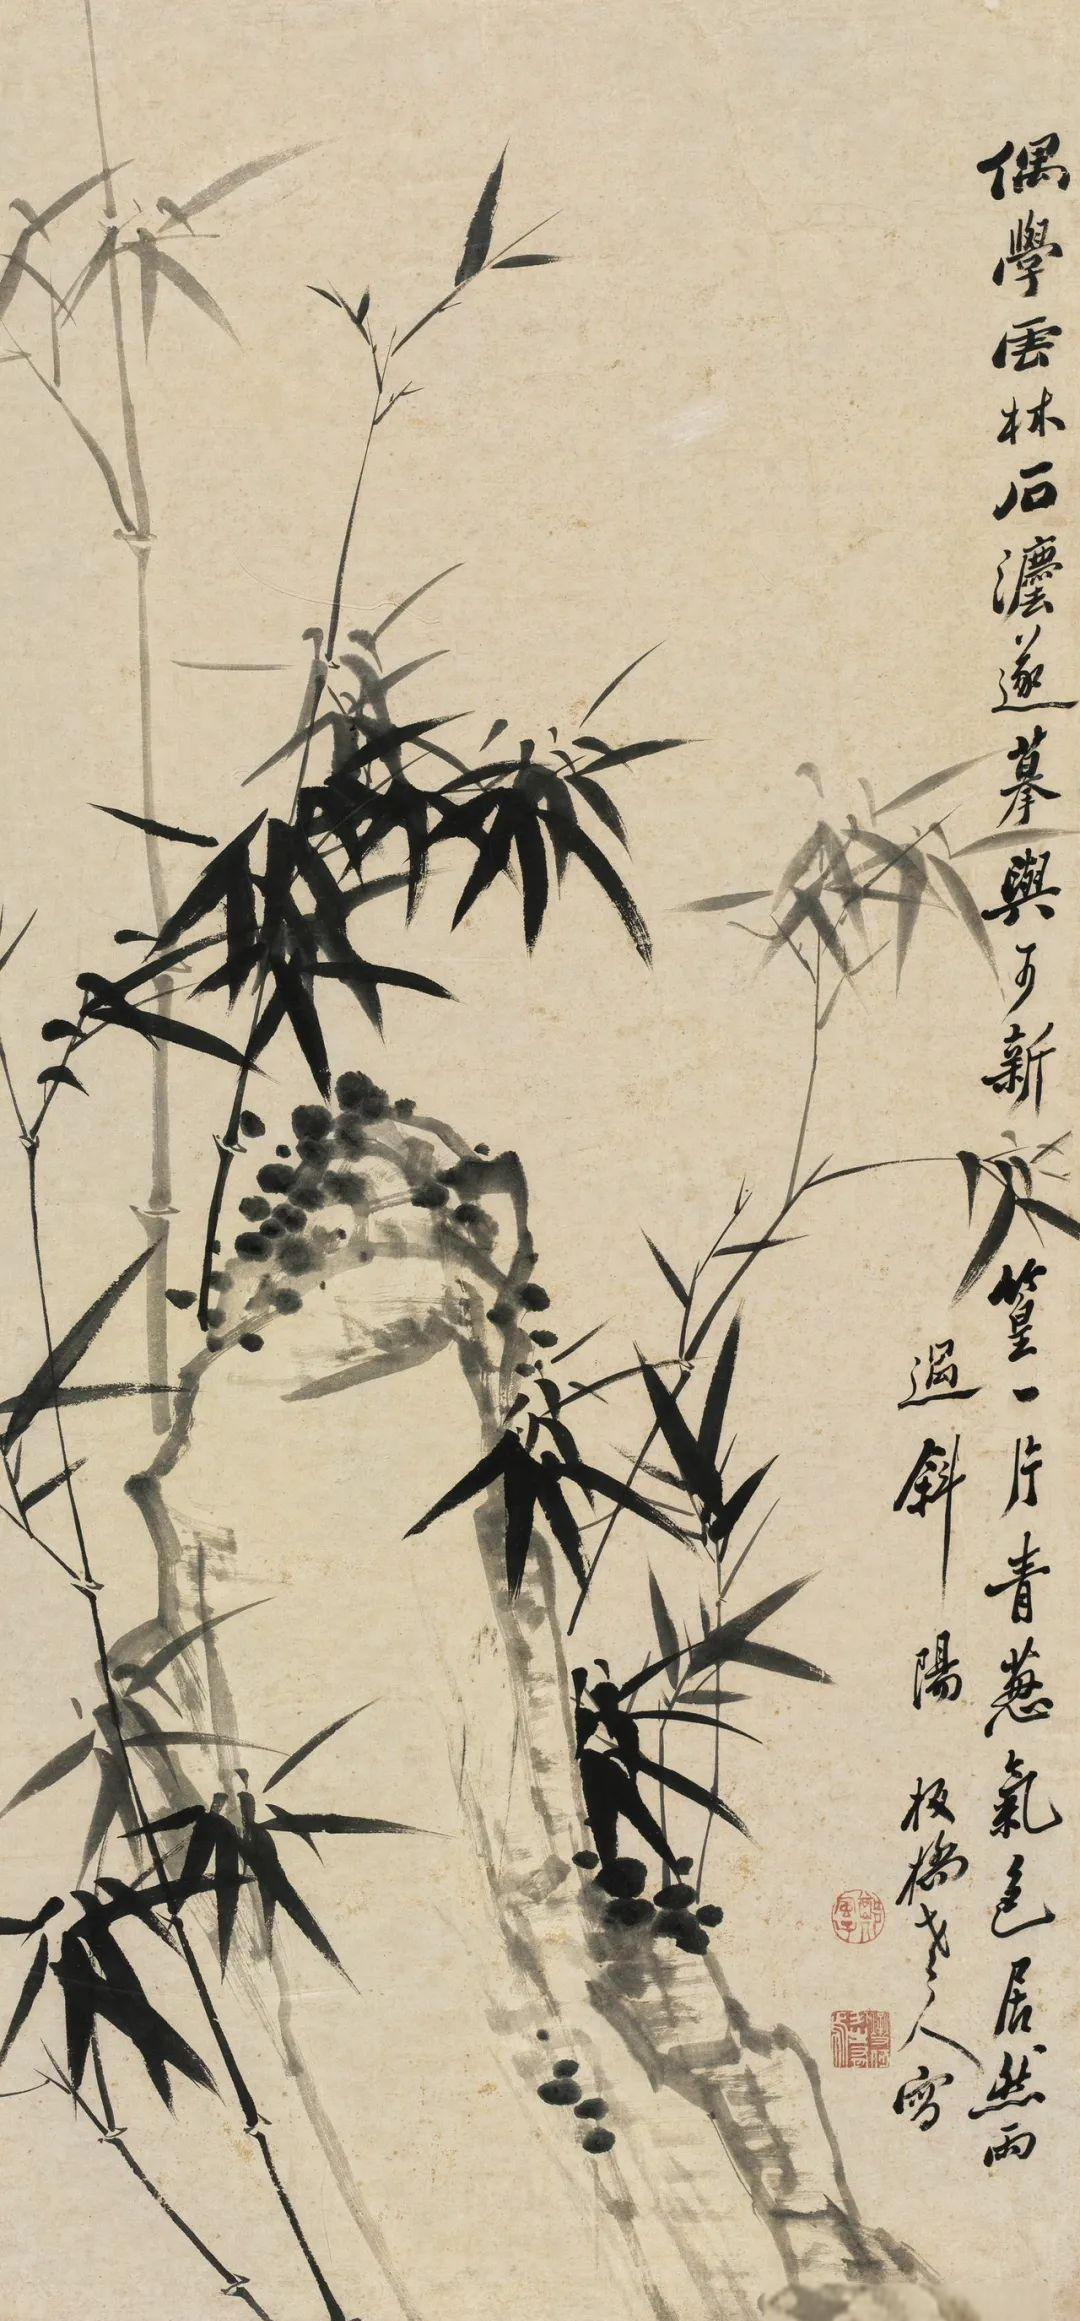 偶學雲林石灋遂摹與可新篁一片青蔥氣色居然雨
過斜陽 板橋老人寫